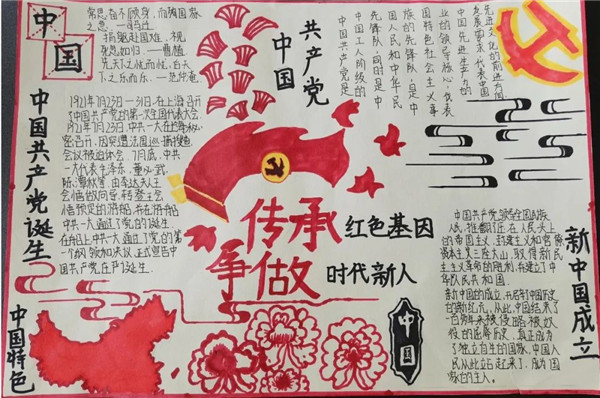 中国
常思奋不顾身，而殉国家
之急。—司马迁
捐躯赴国难，视
死忽如归。—曹植
先天下之忧而忧，后天
下之乐而乐。—范仲淹
中国共产党诞生
1921年7月23日—31日，在上海召开
了中国共产党的第一次全国代表大会
1921年7月23日，中共一大在上海秘
密召开，
会议被迫休会。7月底，中共
一大代表毛泽东，董必武，
中共一大
国共产党庄严诞生。
中国特色
中国
共产党
中国共产党是
中国工人阶级的
先锋队，同时是中
国人民和中华民
族的先锋队，是中
国特色社会主义事
业的领导核心，代表
中国先进生产力的
发展要求，代表中国
先进文化的前进方向
传承
红色基因
争做
时代新人
中国
新中国成立
中国共产党领导各国民族
人民，推翻了压在人民头上
的帝国主义，封建主义和官僚
资本主义三座大山，取得新民
主主义革命的胜利，建立了中
华人民共和国。
新中国的成立，开启中国历史
的新纪元，从此，中国结束了
一百多年来被侵略被奴
役的屈辱历史，真正成为
了独立自主的国家，中国人
民从此站起来了，成为国
家的主人。